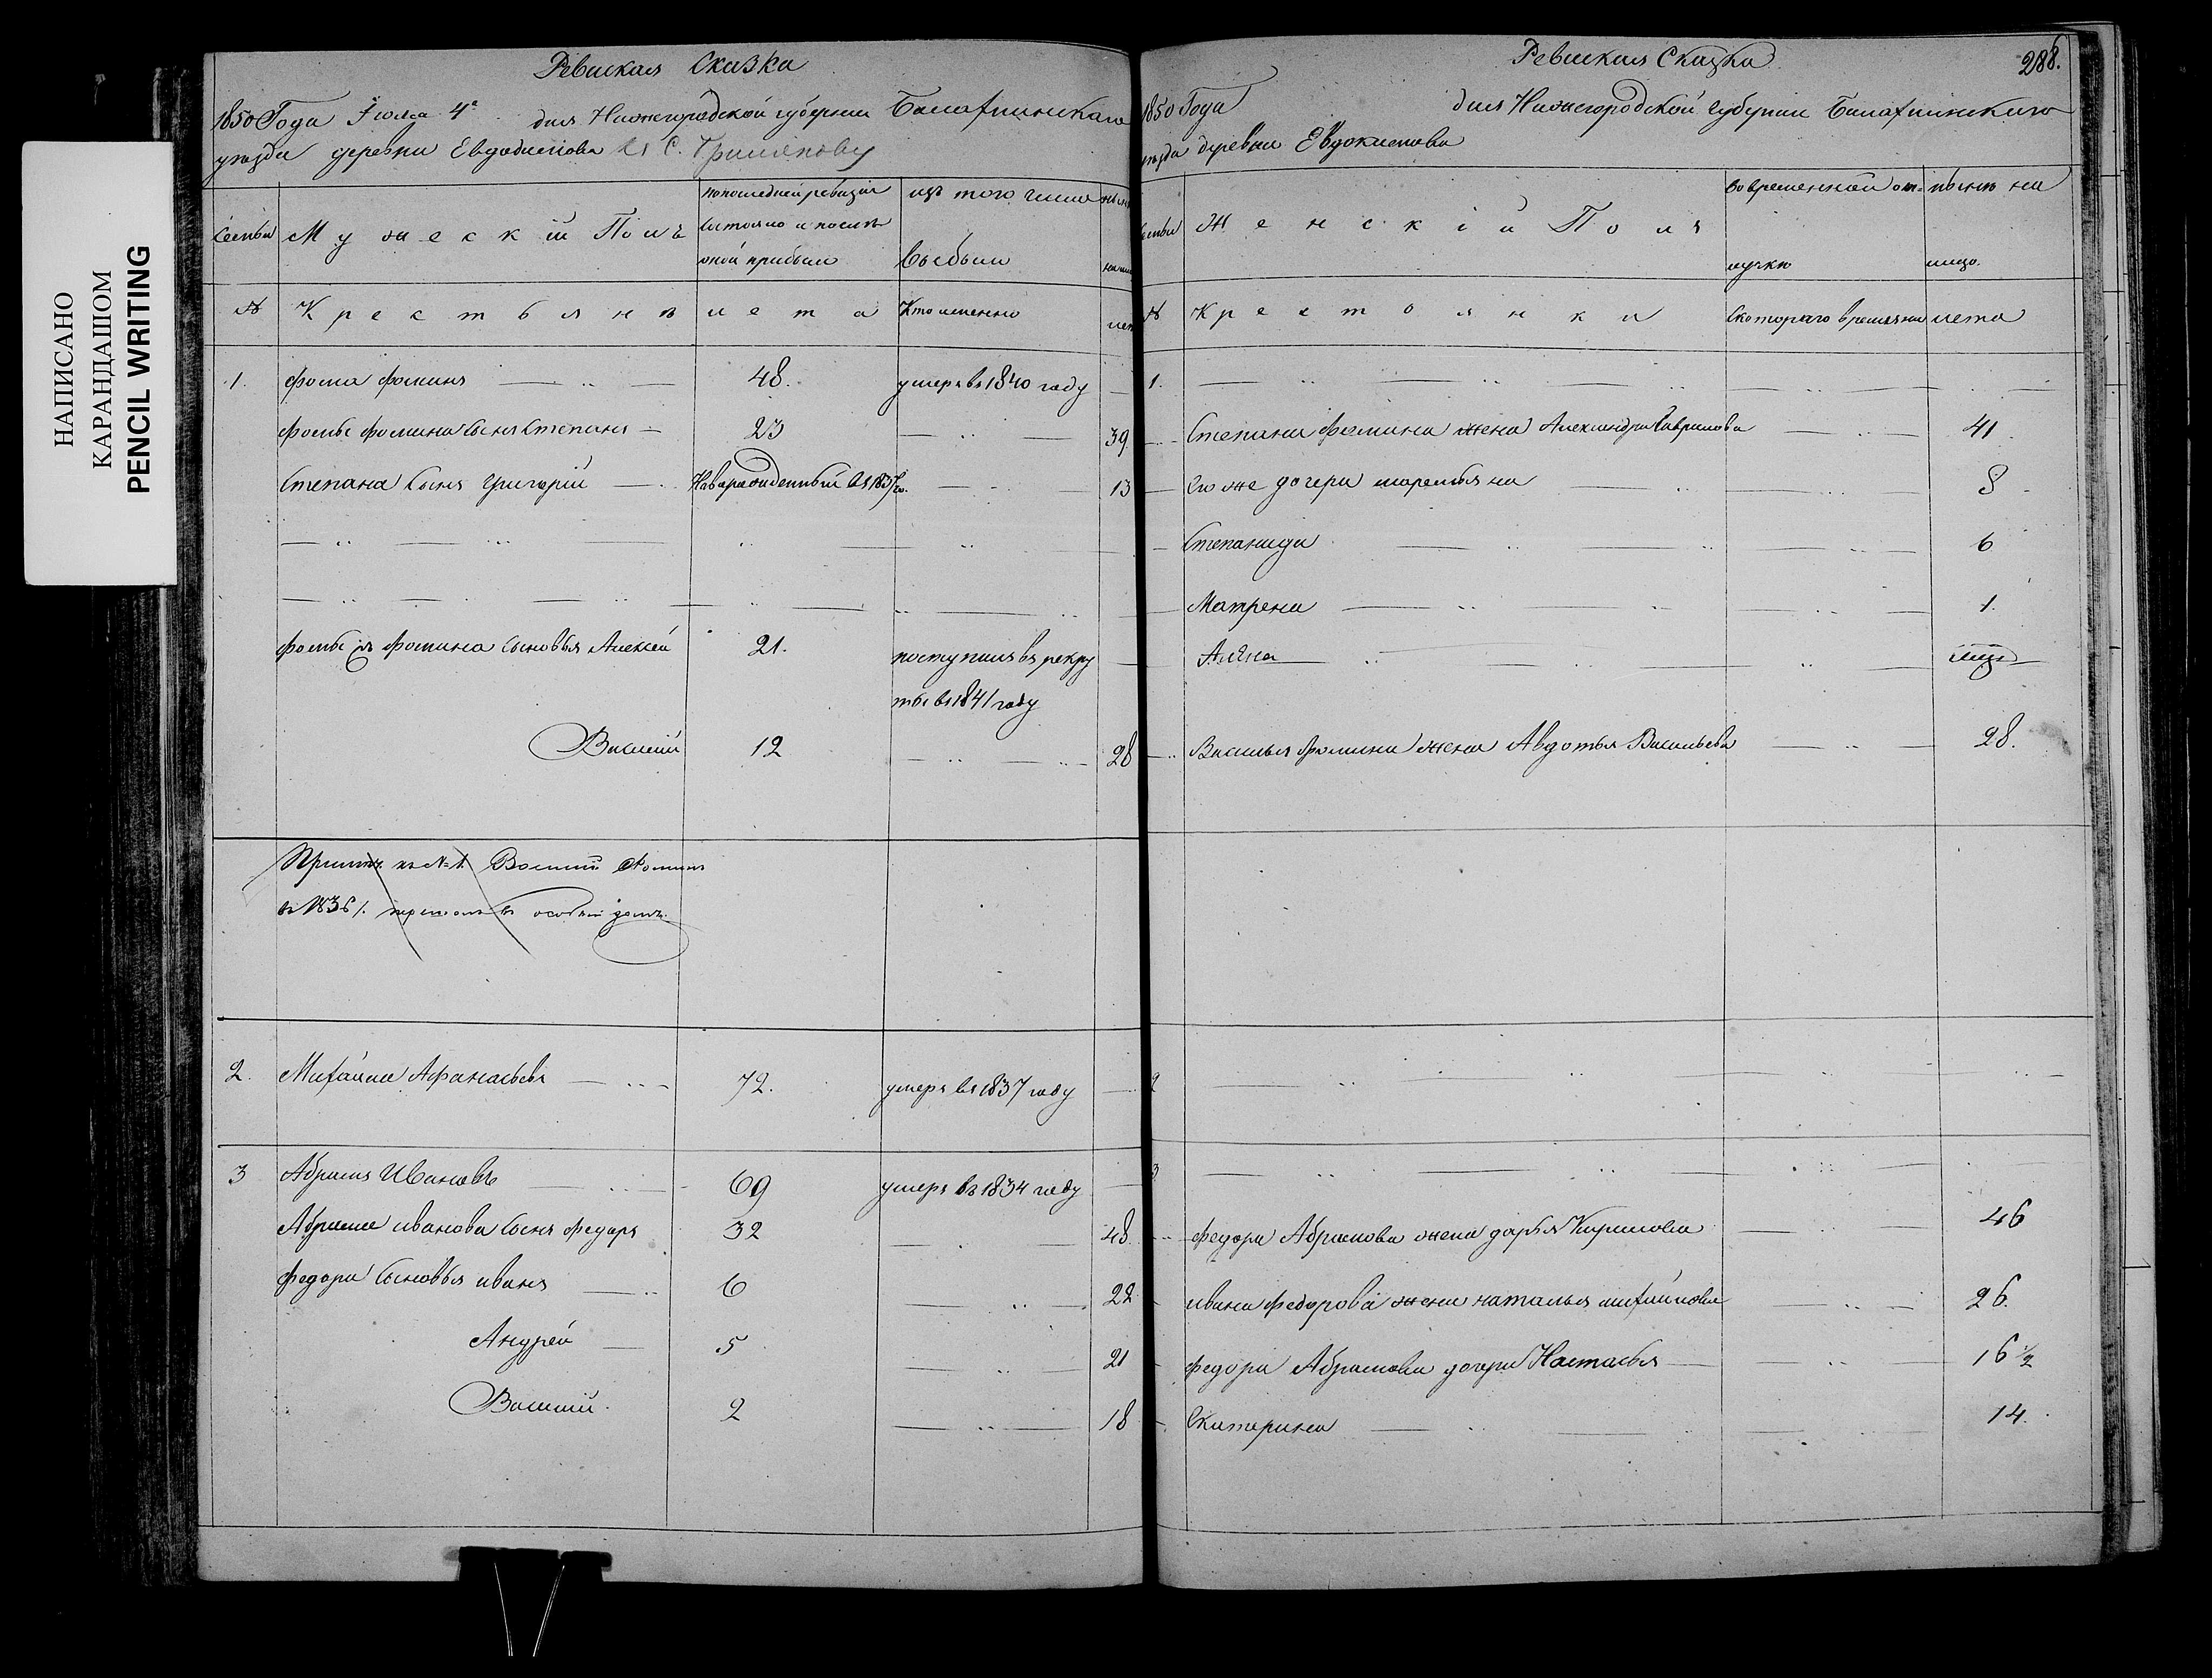 НАПИСАНО
КАРАНДАШОМ
PENCIL WRITING
Ревиская Сказка
1850 Года Іюля 4го дня Нижегородской губернии Балахнинскаго
уѣзда деревни Евдокимова
семьи
Мужескій Полъ
по последней ревизіи состояло и после оной прибыло
изъ того числа выбыли
№
Крестьяне
лета
Кто именно
1. Фома Фоминъ 48. умеръ въ 1840 году
Фомы Фомина сынъ Степанъ 23 39
Степана сынъ Григорій Наварожденный въ 1837 13
Фомы Фомина сыновья Алексей 21. поступилъ въ рекру
ты въ 1841 году
Василій 12 28
къ № 1. Василий Фоминъ
въ 1836 г. особый домъ.
2. Михайла Афанасьевъ 72. умеръ въ 1837 году
3 Абрамъ Ивановъ 69 умеръ въ 1834 году
Абрама иванова сынъ федоръ 32 48
федора сыновья иванъ 6 22
Андрей 5 21
Василий 2 18
Ревиская Сказка
288.
1850 Года дня Нижегородской губернии Балахнинскаго
уѣзда деревни Евдокимова
семьи
Женскій Полъ
во временной от
лучке
ныне на
лицо.
№
Крестьянки
с котораго времяни
лета
1.
Степана Фомина жена Александра Гаврилова 41
Ево же дочери маремьяна 8
Степанида 6
Матрена 1.
Алена
Василья Фомина жена Авдотья Васильева 28.
2
3
федора Абрамова жена дарья Кирилова 46
ивана федорова жена наталья михайлова 26.
федора Абрамова дочери Настасья 16 1/2
Екатерина 14.